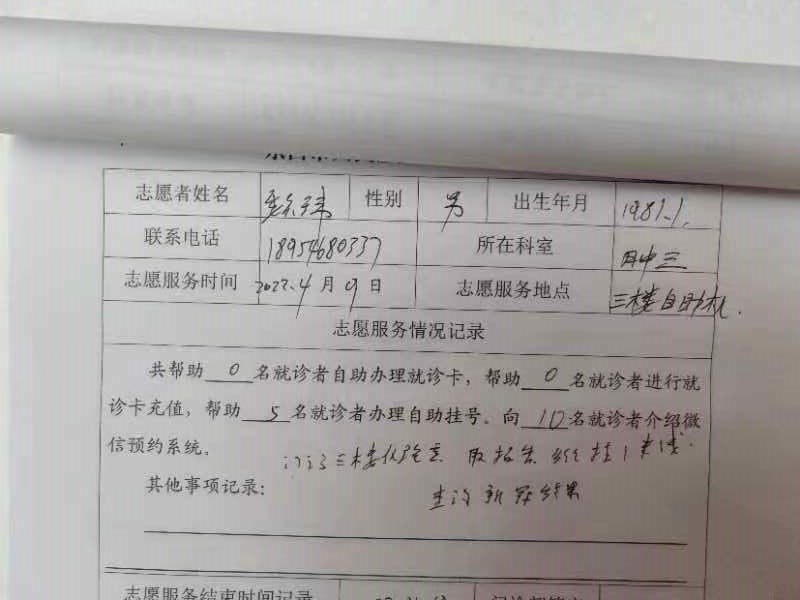 志愿者姓名 性别 男 出生年月 1981.1.
联系电话 18954680337 所在科室
志愿服务时间 2022.4月9日 志愿服务地点 三楼自助机.
志愿服务情况记录
共帮助0名就诊者自助办理就诊卡，帮助0名就诊者进行就
诊卡充值，帮助5名就诊者办理自助挂号。向10名就诊者介绍微
信预约系统。
三楼 取报告
其他事项记录： 查询新冠结果
志愿服务结束时间记录